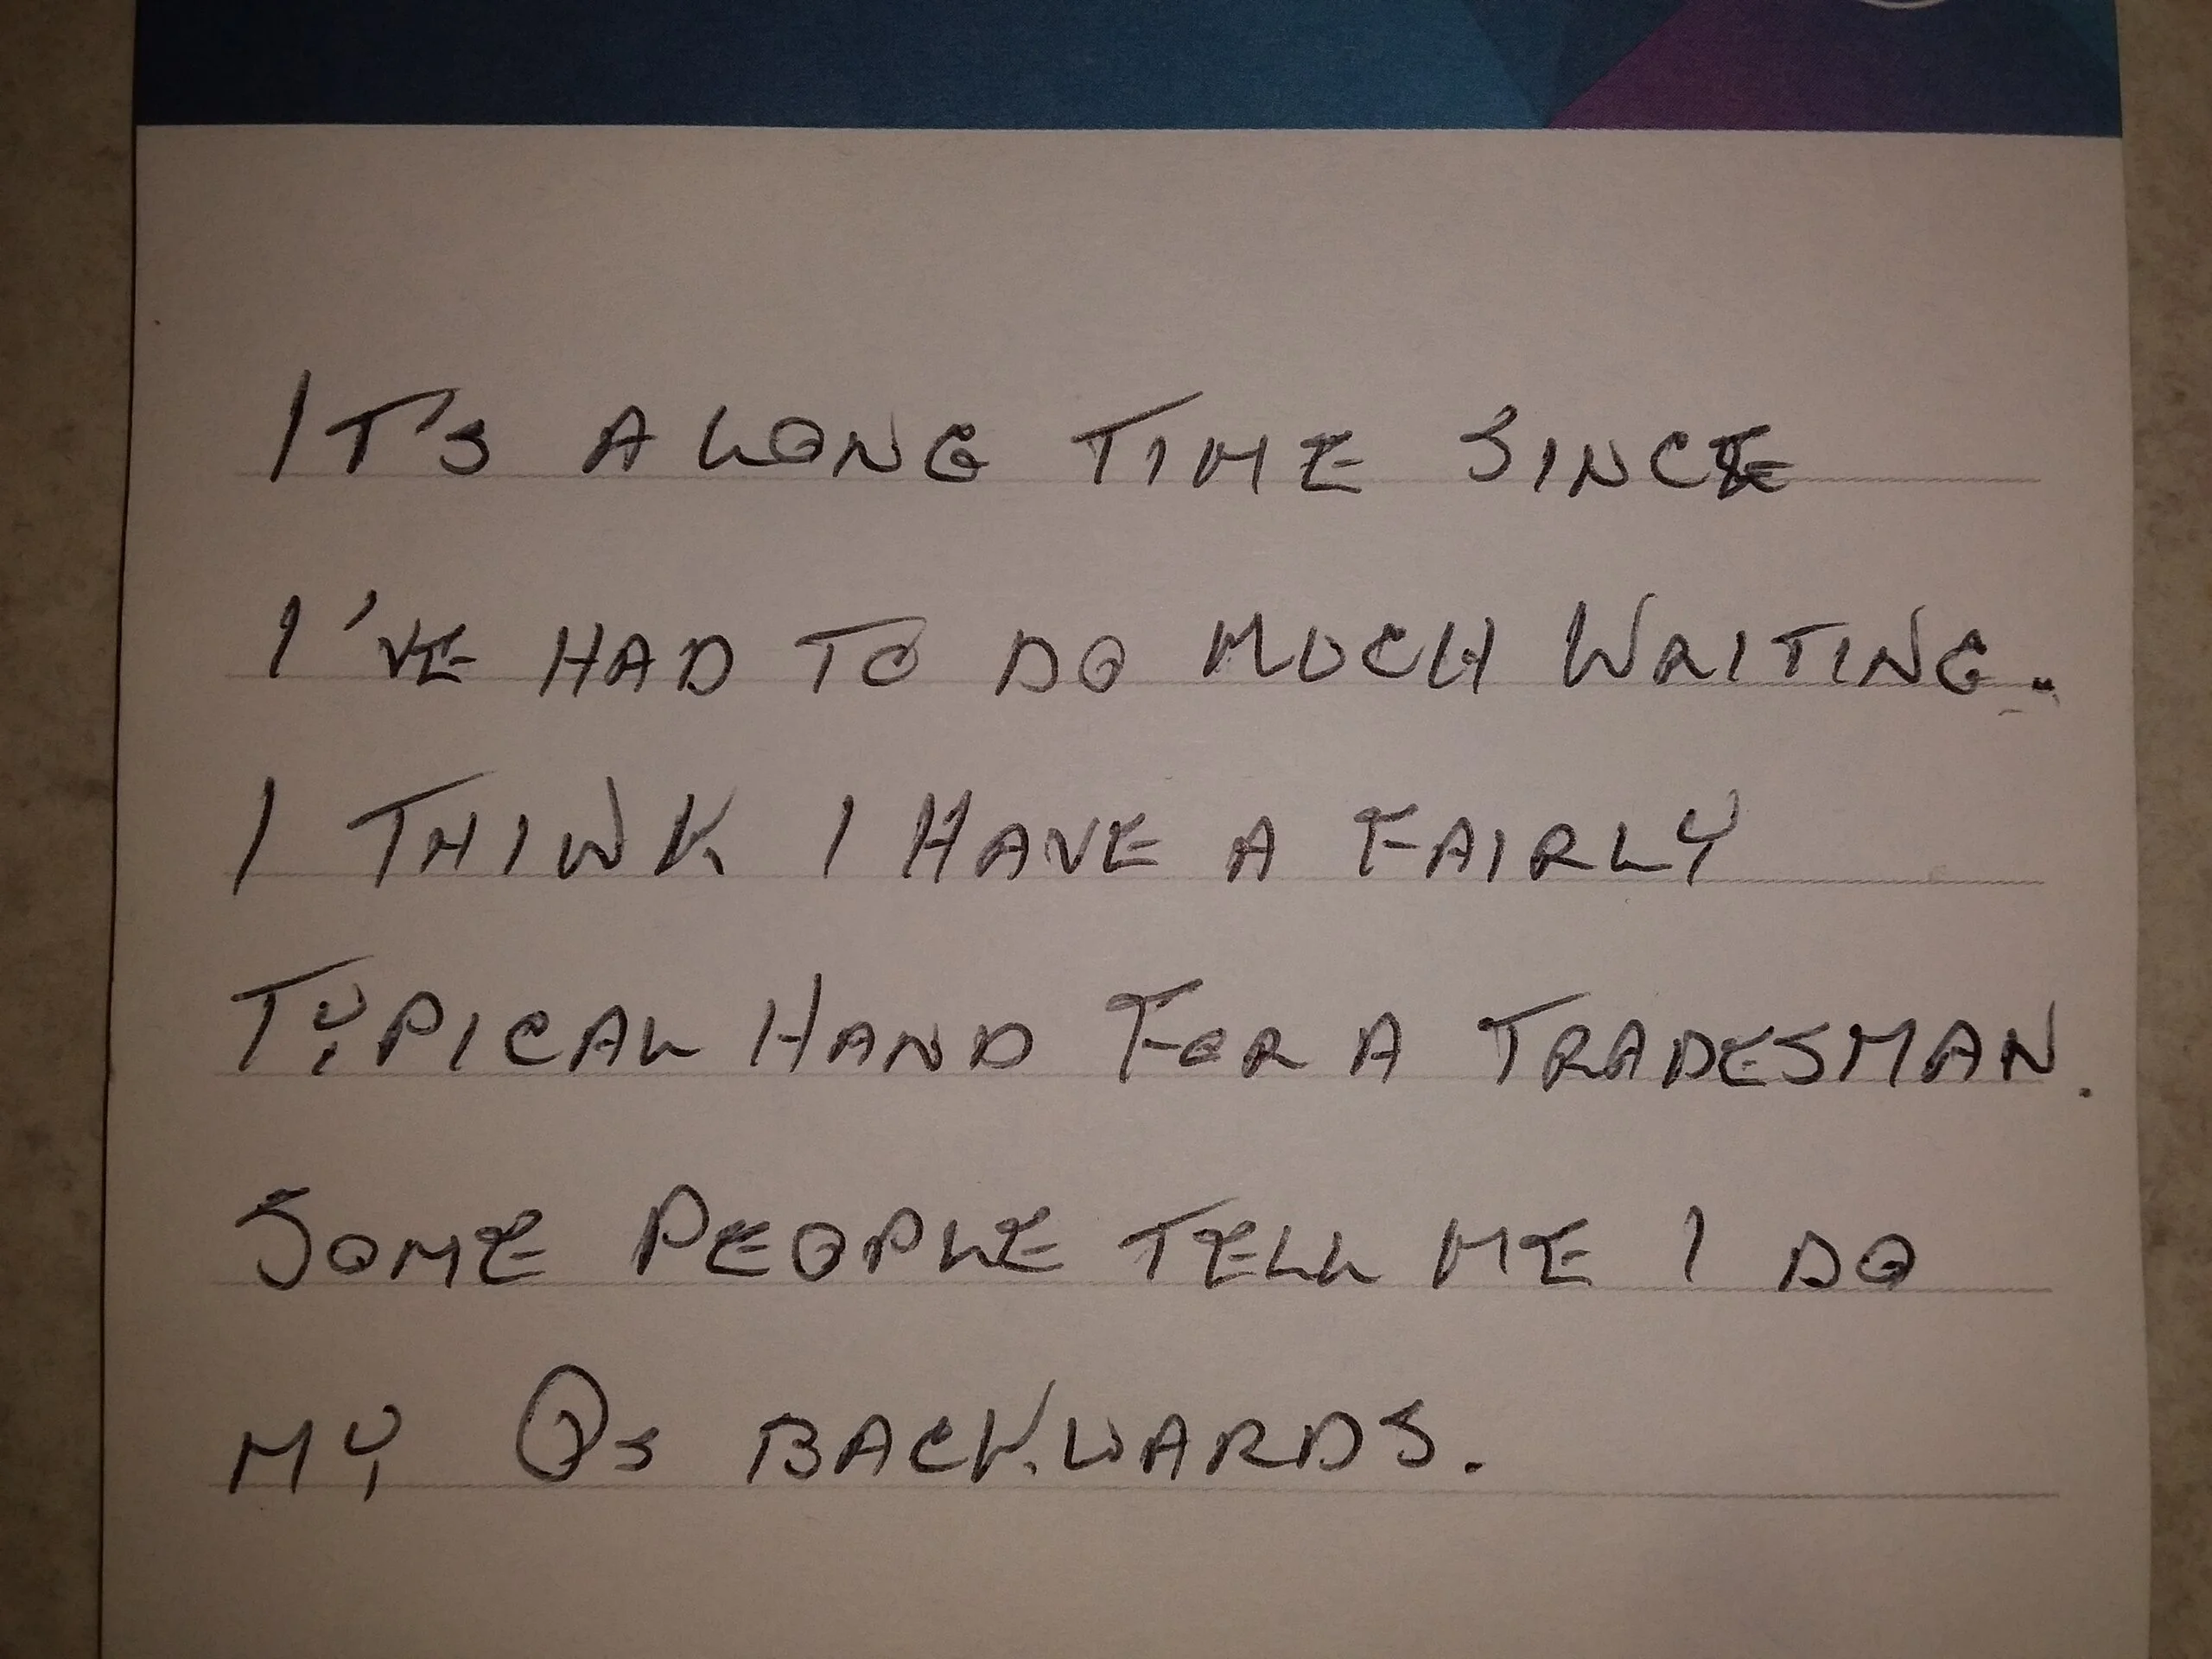 IT'S A LONG TIME SINCE
I'VE HAD TO DO MUCH WRITING.
I THINK I HAVE A FAIRLY
TYPICAL HAND FOR A TRADESMAN.
SOME PEOPLE TELL ME I DO
MY Qs BACKWARDS.